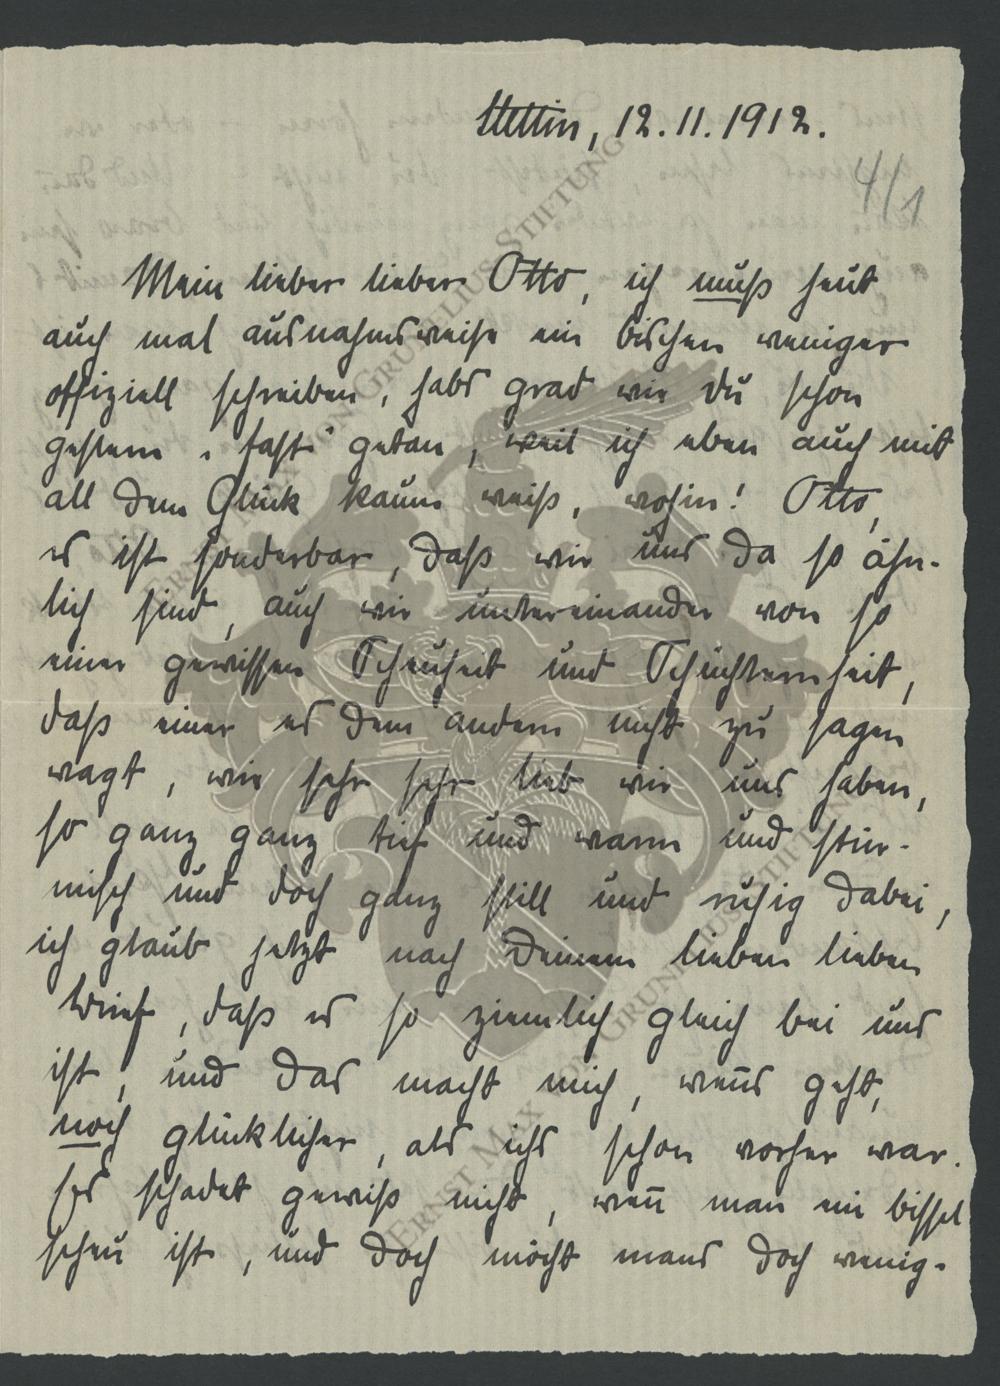 Stettin, 12.11.1912.
4/1
Mein lieber lieber Otto, ich muß heut
auch mal ausnahmsweise ein bischen weniger
offiziell schreiben, habs grad wie Du schon
gestern „fast“ getan, weil ich eben auch mit
all dem Glück kaum weiß, wohin! Otto,
es ist sonderbar, daß wir uns da so ähn-
lich sind, auch wir untereinander von so
einer gewissen Scheuheit und Schüchternheit,
daß einer es dem andern nicht zu sagen
wagt, wie sehr sehr lieb wir uns haben,
so ganz ganz tief und warm und stür-
misch und doch ganz still und ruhig dabei,
ich glaub jetzt nach Deinem lieben lieben
Brief, daß es so ziemlich gleich bei uns
ist, und das macht mich, wenns geht,
noch glücklicher, als ichs schon vorher war.
Es schadet gewiß nicht, weñ man ein bissel
scheu ist, und doch möcht mans doch wenig-
ERNST MAX VON GRUNELIUS-STIFTUNG
ERNST MAX VON GRUNELIUS-STIFTUNG